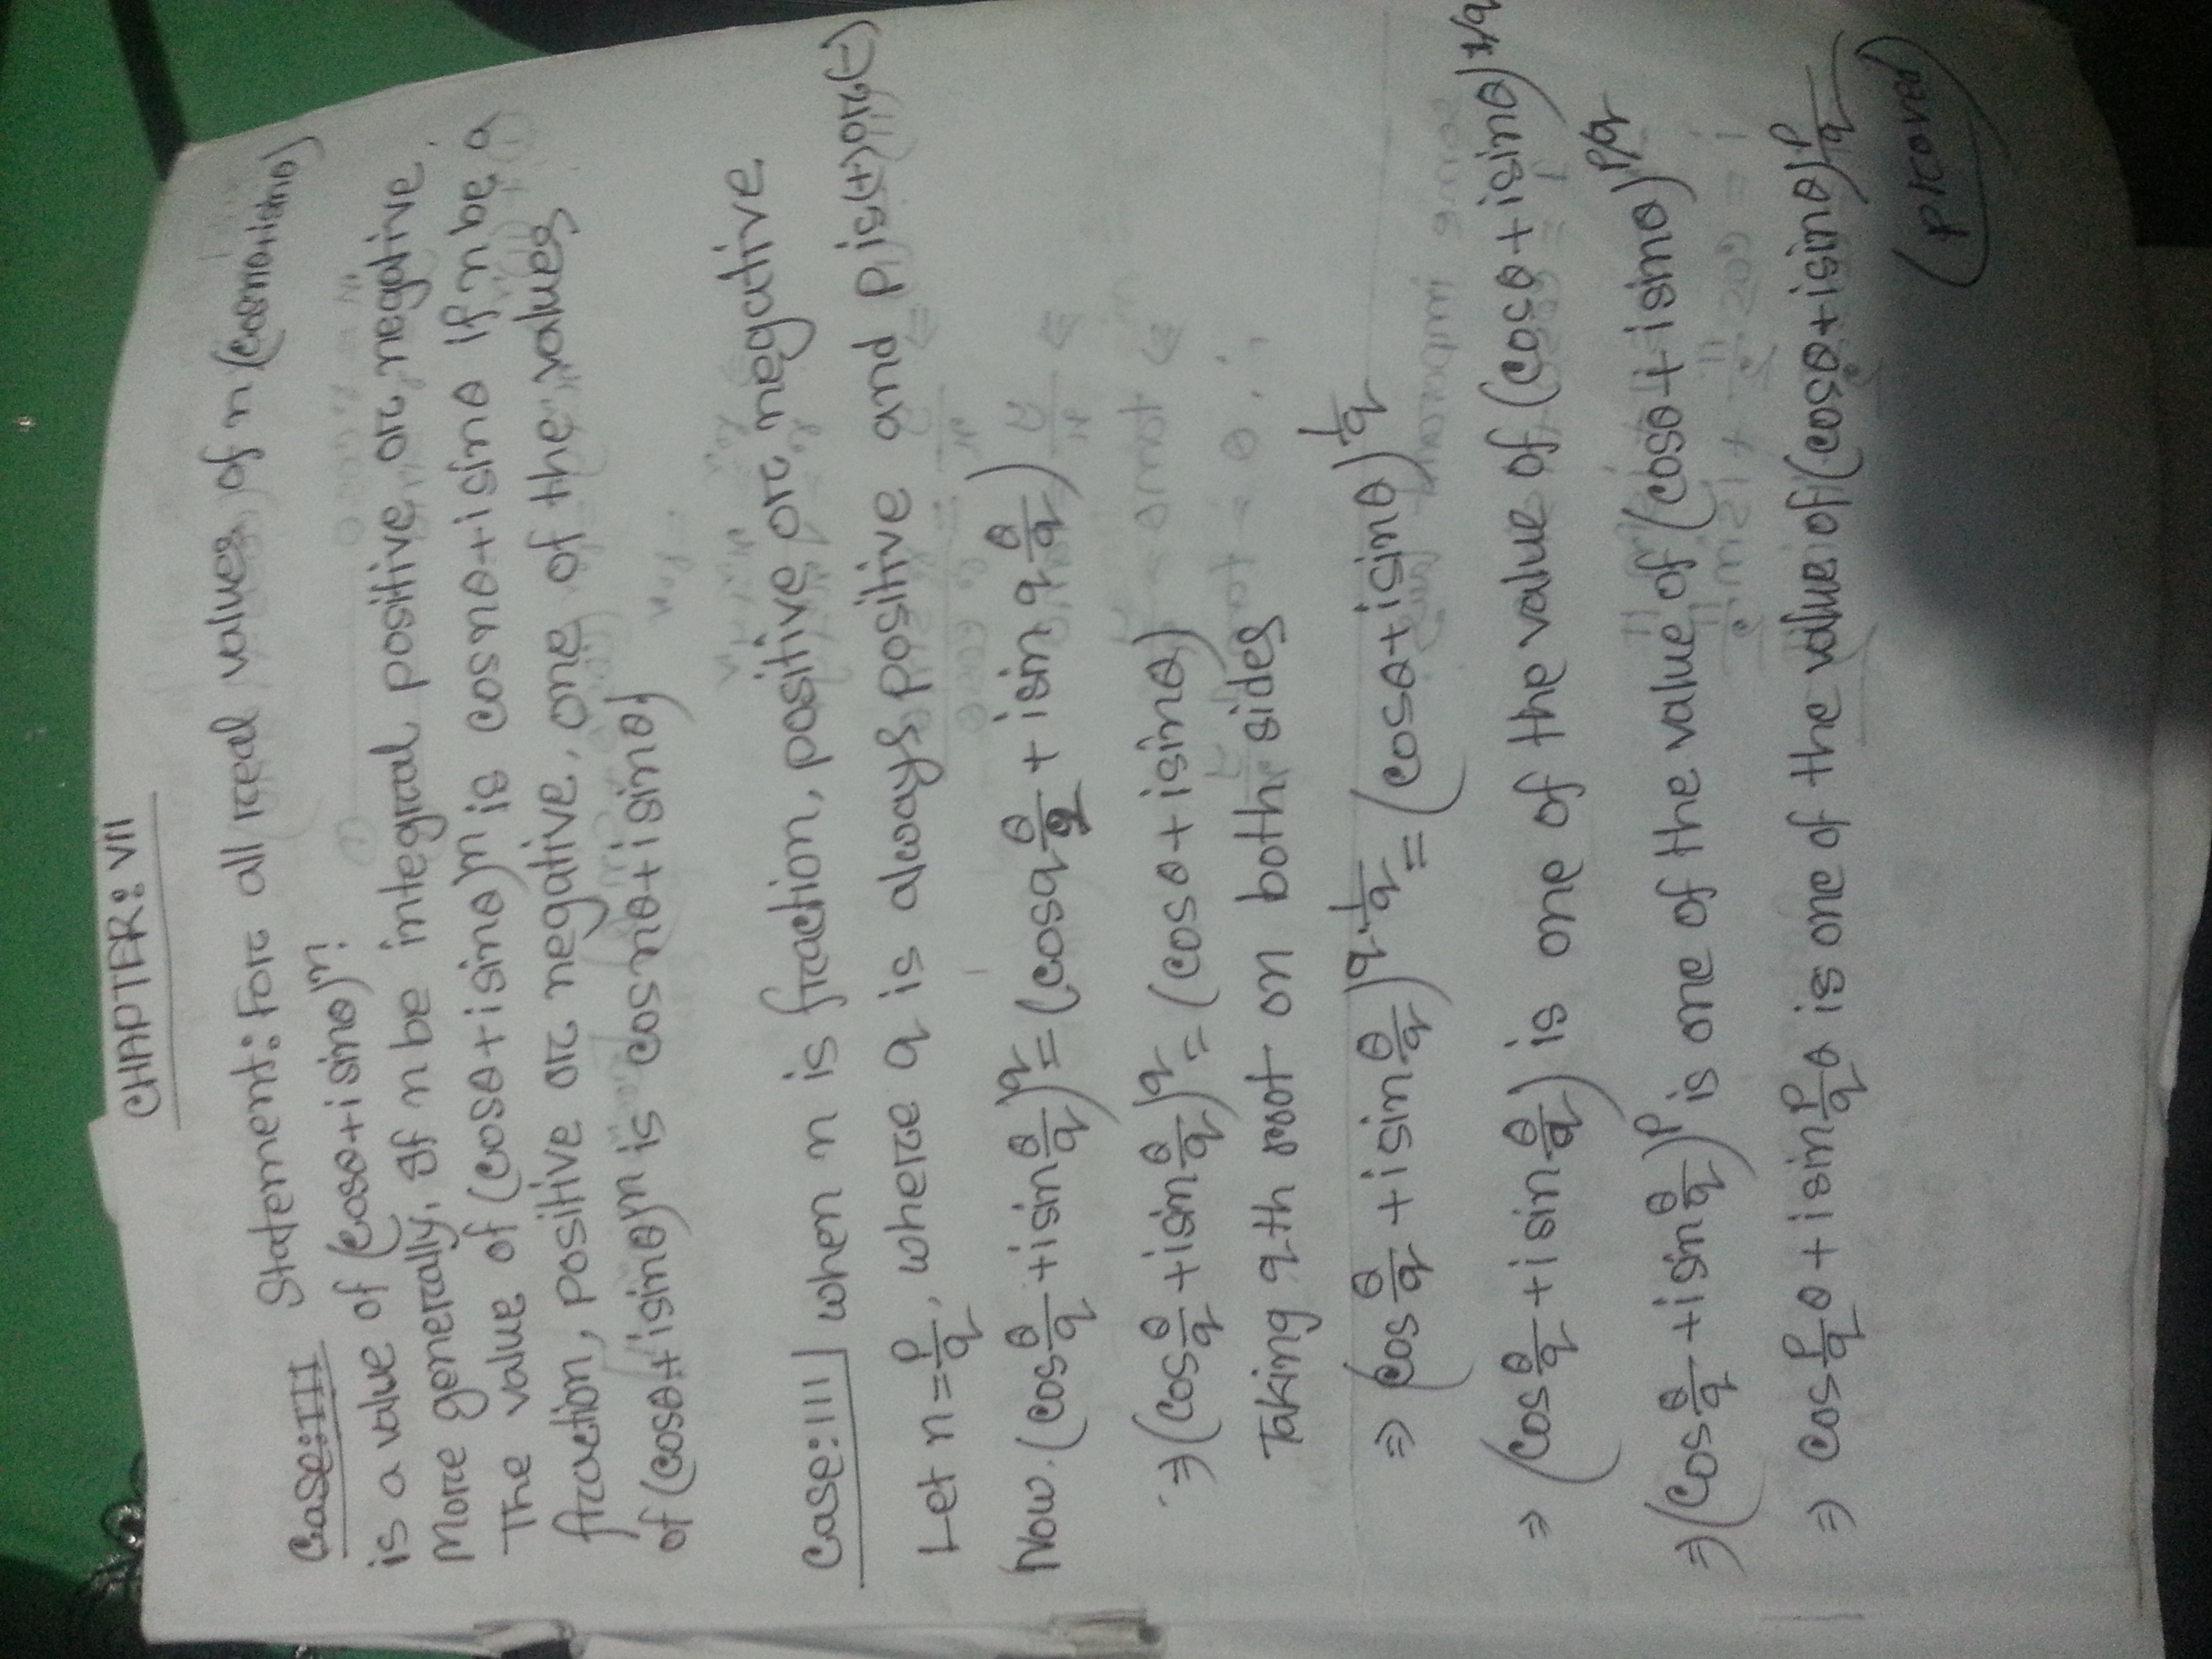 CHAPTER: VII
Case:III Statement: For all real values of n (cosnθ+isinθ)
is a value of (cosθ+i sinθ)ⁿ!
More generally, If n be integral positive or negative.
The value of (cosθ+isinθ)ⁿ is cosnθ+isinθ If n be a
fraction, positive or negative, one of the values
of (cosθ+isinθ)ⁿ is cosnθ+isinθ)
Case:III) when n is fraction, positive or negative
Let n=p/q, where q is always positive and p is(+)or(-)
Now. (cos θ/q +isin θ/q)^q = (cosq θ/q + isin q θ/q)
⇒(cos θ/q +isin θ/q)^q = (cosθ+isinθ)
Taking qth root on both sides
⇒ (cos θ/q +isin θ/q)^(q·1/q) = (cosθ+isinθ)^(1/q)
⇒ (cos θ/q +isin θ/q) is one of the value of (cosθ+isinθ)^(1/q)
⇒(cos θ/q +isin θ/q)^p is one of the value of (cosθ+isinθ)^(p/q)
⇒ cos p/q θ+isin p/q θ is one of the value of (cosθ+isinθ)^(p/q)
(proved)